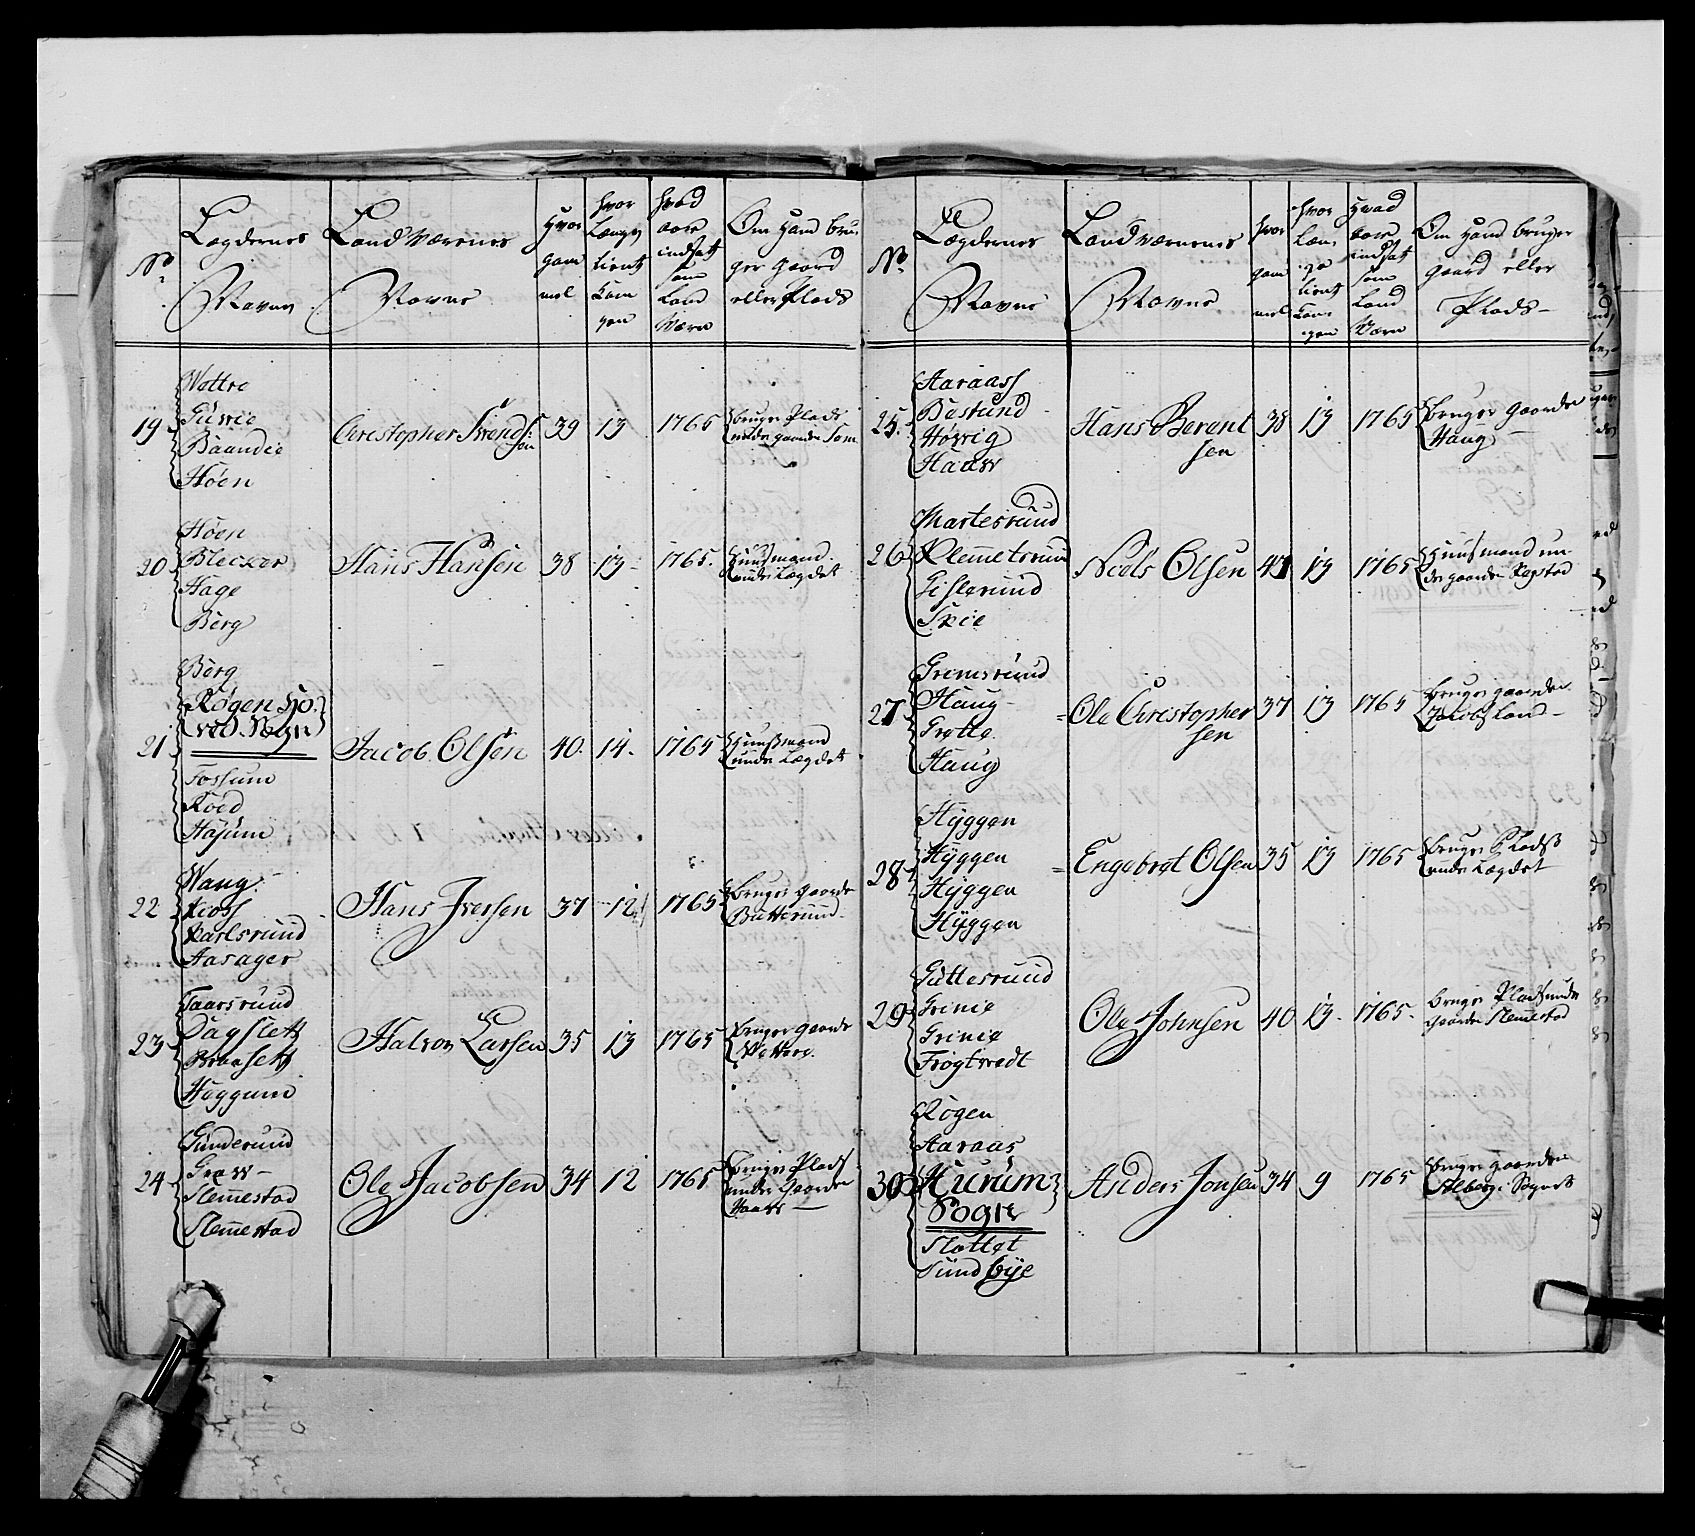 No
Lægdernes
Navne
Landværenes
Navne
Hvor
gam
mel
hvor
Længe
tient
Kon
gen
hvad
aar
indsatt
som
Land
Værn
Om Hand bru,
ger gaard
eller Plads
19
Wattre
Gisvie
Baandie
Høen
Christopher Svends
søn
39
13
1765
bruger Plads
under gaarden
20
Høen
Blecker
Hage
Berg
Hans Hansen
38
13
1765.
Huusmand
under Lægdet
21
Berg
Røgen Ho,
ved Sogn
Fossum
Koed
Hajum
Jacob Olsen
40.
14.
1765
Huusmand
under Lægdet
22
Wang
Kioss
Karlsrund
Aasager
Hans Iversen
37
12
1765
bruger gaarden
23
Taarsruud
Dagslett
Braasett
Høggum
Halvor Larsen
35
13
1765
bruger gaarden
Wattere.
24
Gunderuud
Graw
Slemestad
Slemestad
Ole Jacobsen
34
12
1765
bruger Plads
under Gaarden
Haaw
No
Lægdernes
Navne
Landværnenes
Navne
hvor
gam
mel
hvor
Læn
ge
tient
Kon
gen
Hvad
aar
indsat
som
Land
Værn
Om Hand bruger
gaard eller
Plads
25
Aaraass
Bastund
Høvrig
Haaw
Hans Berent
sen
38
13
1765
bruger Gaarden
Haug
26
Martesruud
Klemetsrud
Gislerund
Skie
Niels Olsen
41
13
1765
Huusmand un
der gaarden
27
Gremsruud
Haug
Grøtte
Haug
Ole Christopher
sen
37
13
1765
bruger gaarden
Jacobsland
28
Hÿggen
Hÿggen
Hÿggen
Hÿggen
Engebret Olsen
35
13
1765
bruger Plads
under Lægdet
29
Guttersruud
Grinie
Grinie
Frøgtvedt
Ole Johnsen
40
13.
1765.
bruger Plads under
Gaarden Slemestad
30
Røgen
Aaraas
Hurum
Sogn
Slottet
Sundbÿe
Anders Jonsen
34
9
1765
bruger gaarden